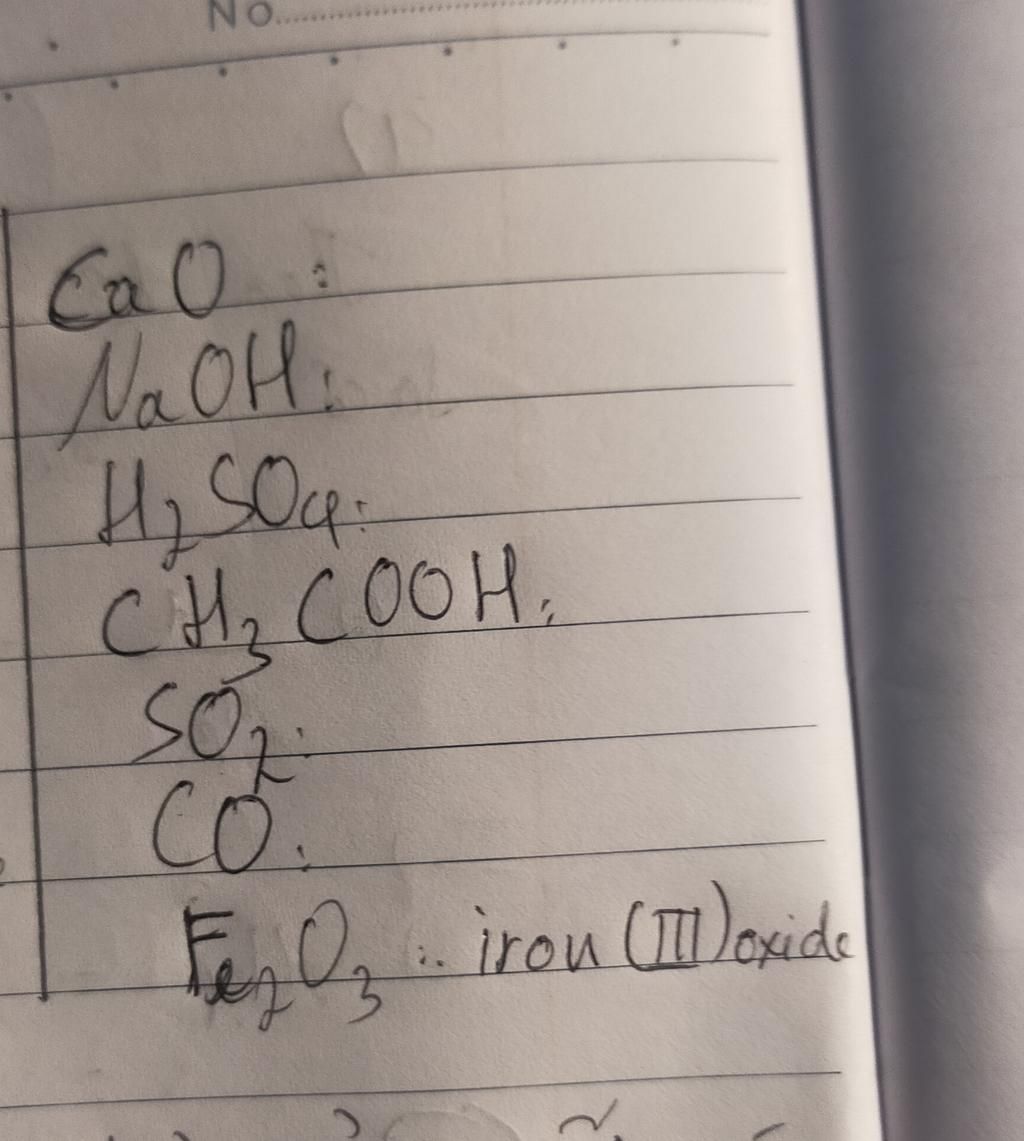 No
CaO :
NaOH :
H₂SO₄ :
CH₃COOH :
SO₂ :
CO :
Fe₂O₃ : iron (III) oxide